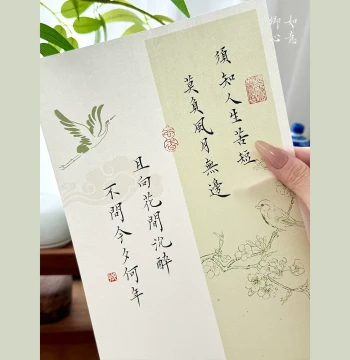 須知人生苦短
莫負風月無邊
且向花間沉醉
不問今夕何年
如意
卿心